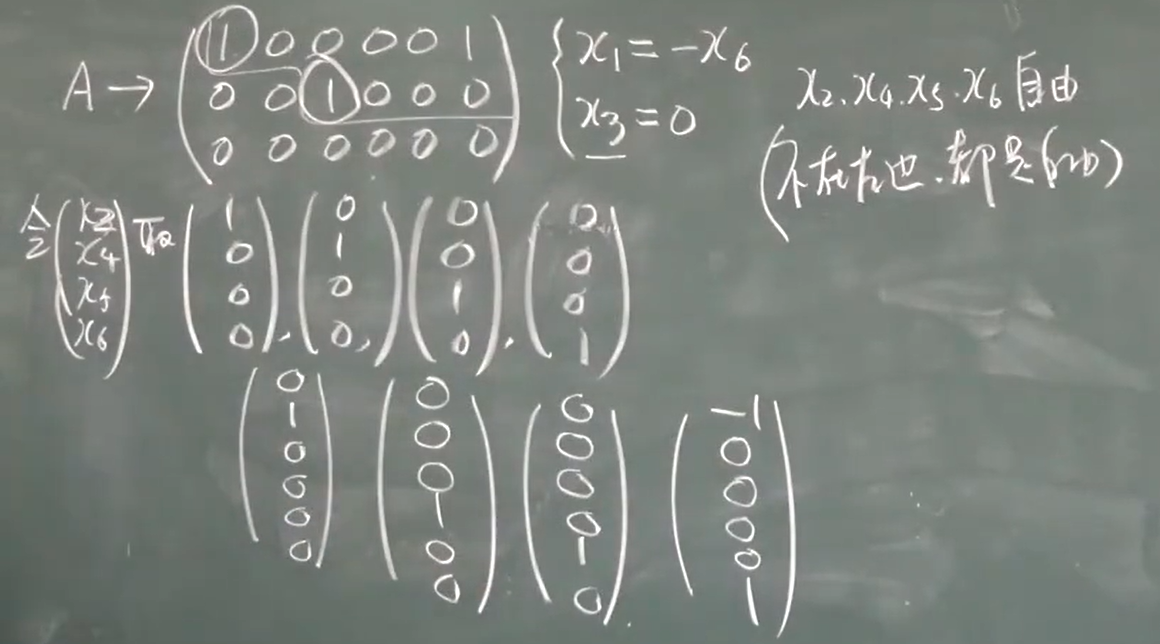 A → (1 0 0 0 0 1) { x₁ = -x₆
(0 0 1 0 0 0) x₃ = 0
(0 0 0 0 0 0)
x₂.x₄.x₅.x₆自由
(不在左边.都是自由)
令 (x₂ x₄ x₅ x₆) 取 (1 0 0 0), (0 1 0 0), (0 0 1 0), (0 0 0 1)
(0 1 0 0 0 0) (0 0 0 1 0 0) (0 0 0 0 1 0) (-1 0 0 0 0 1)